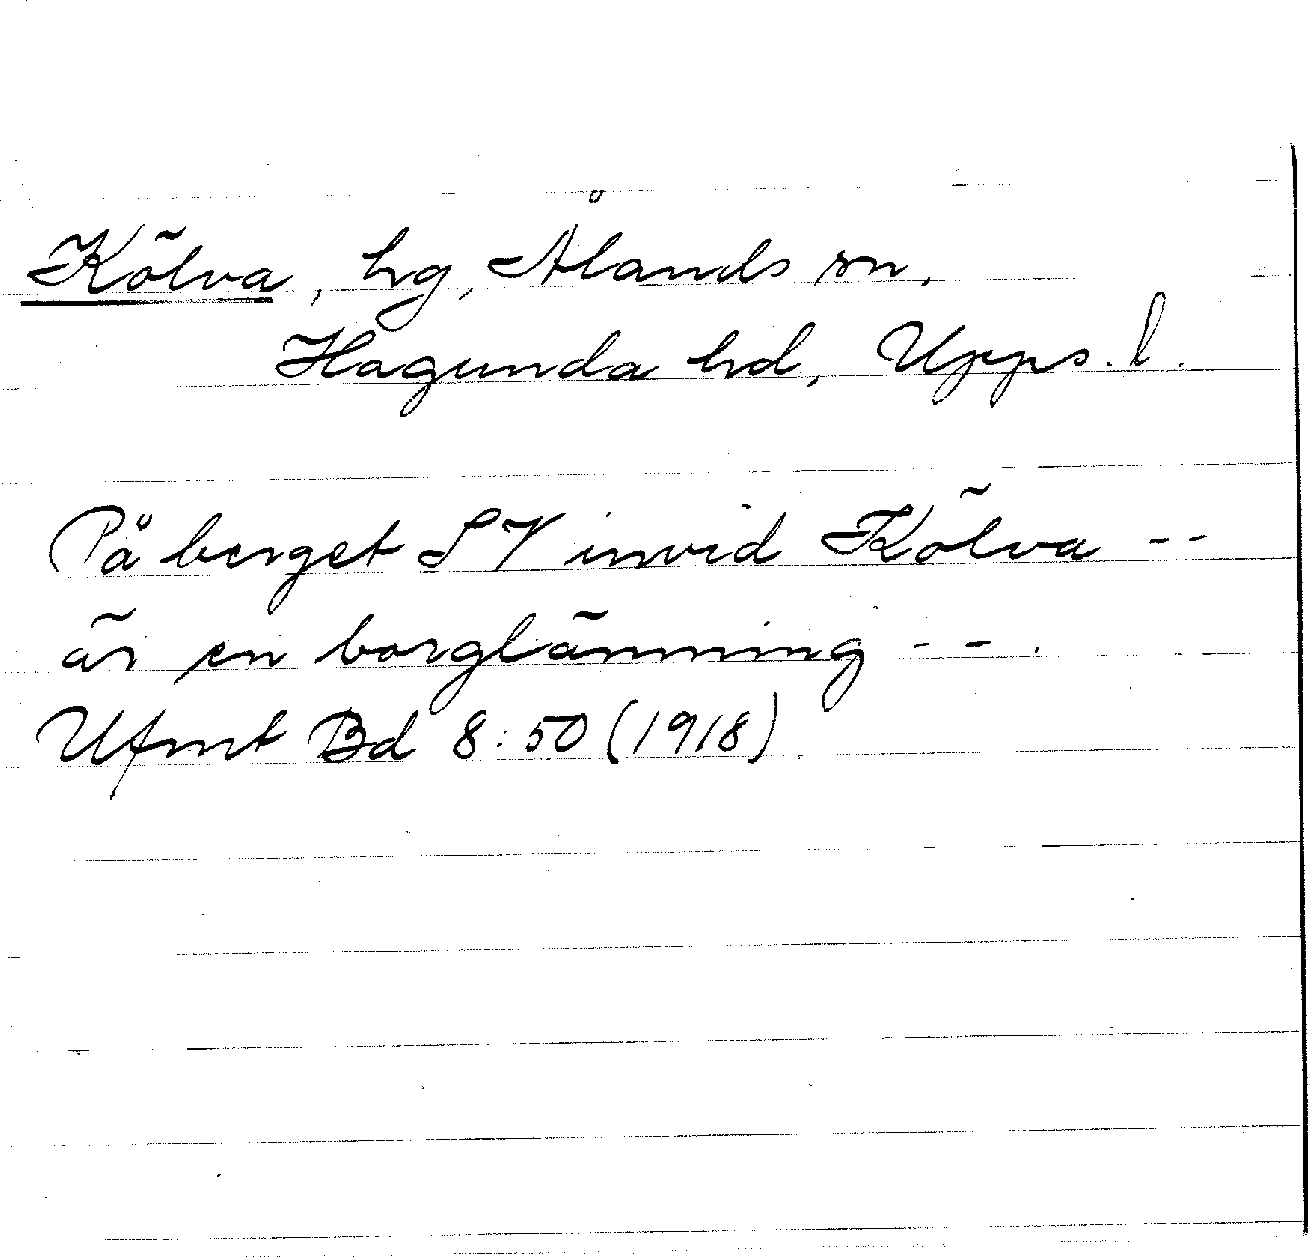 Kölva, hg, Ålands sn,
Hagunda hd, Upps. l.
På berget SV invid Kölva --
är en borglämning -- .
Ufmt Bd 8:50 (1918)